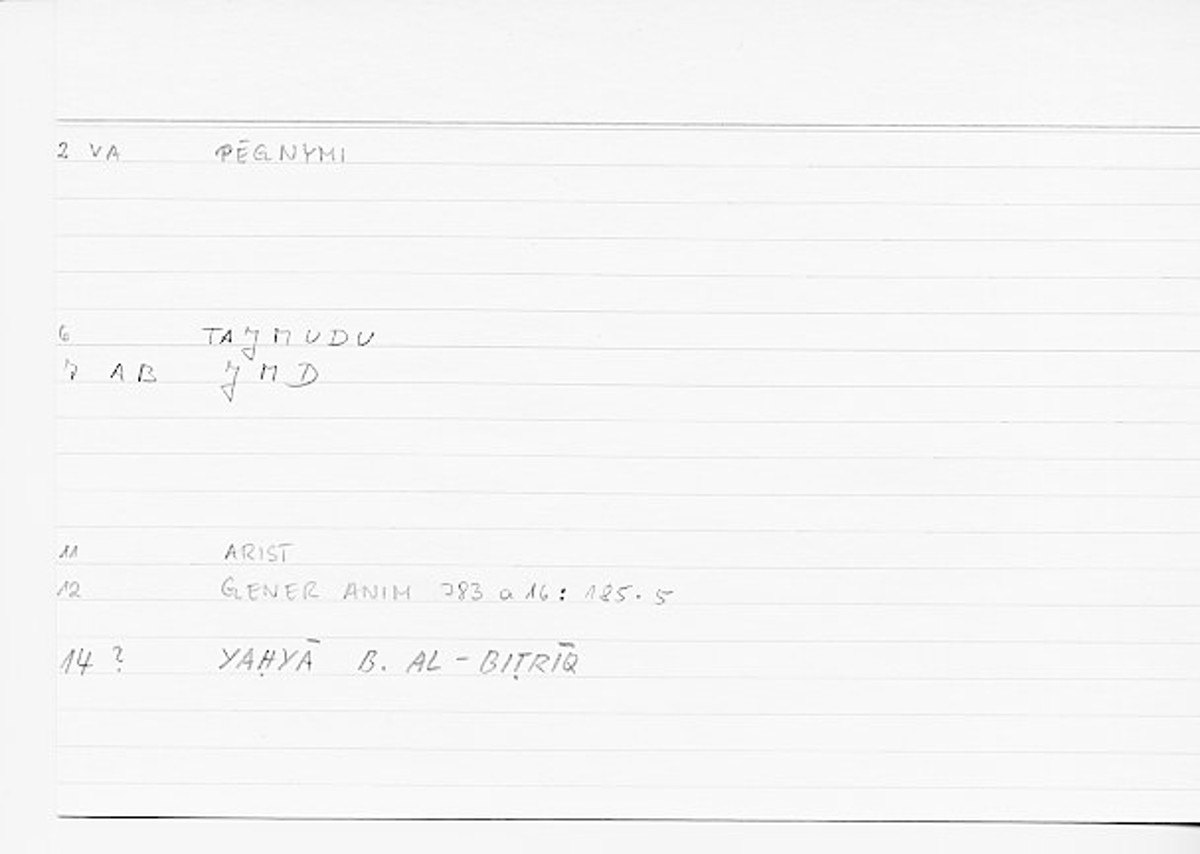 2 VA PĒGNYMI
6 TAJMUDU
7 AB JMD
11 ARIST
12 GENER ANIM 783 a 16: 185.5
14 ? YAḤYĀ B. AL-BIṬRĪQ